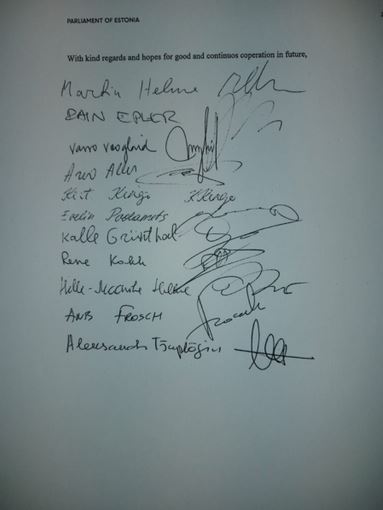 PARLIAMENT OF ESTONIA
With kind regards and hopes for good and continuos coperation in future,
Martin Helme
RAIN EPLER
varro vooglaid
Arvo Aller
Kert Kingo KKingo
Evelin Poolamets
Kalle Grünthal
Rene Kokk
Helle-Moonika Helme
ANTS FROSCH
Aleksandr Tšaplõgin